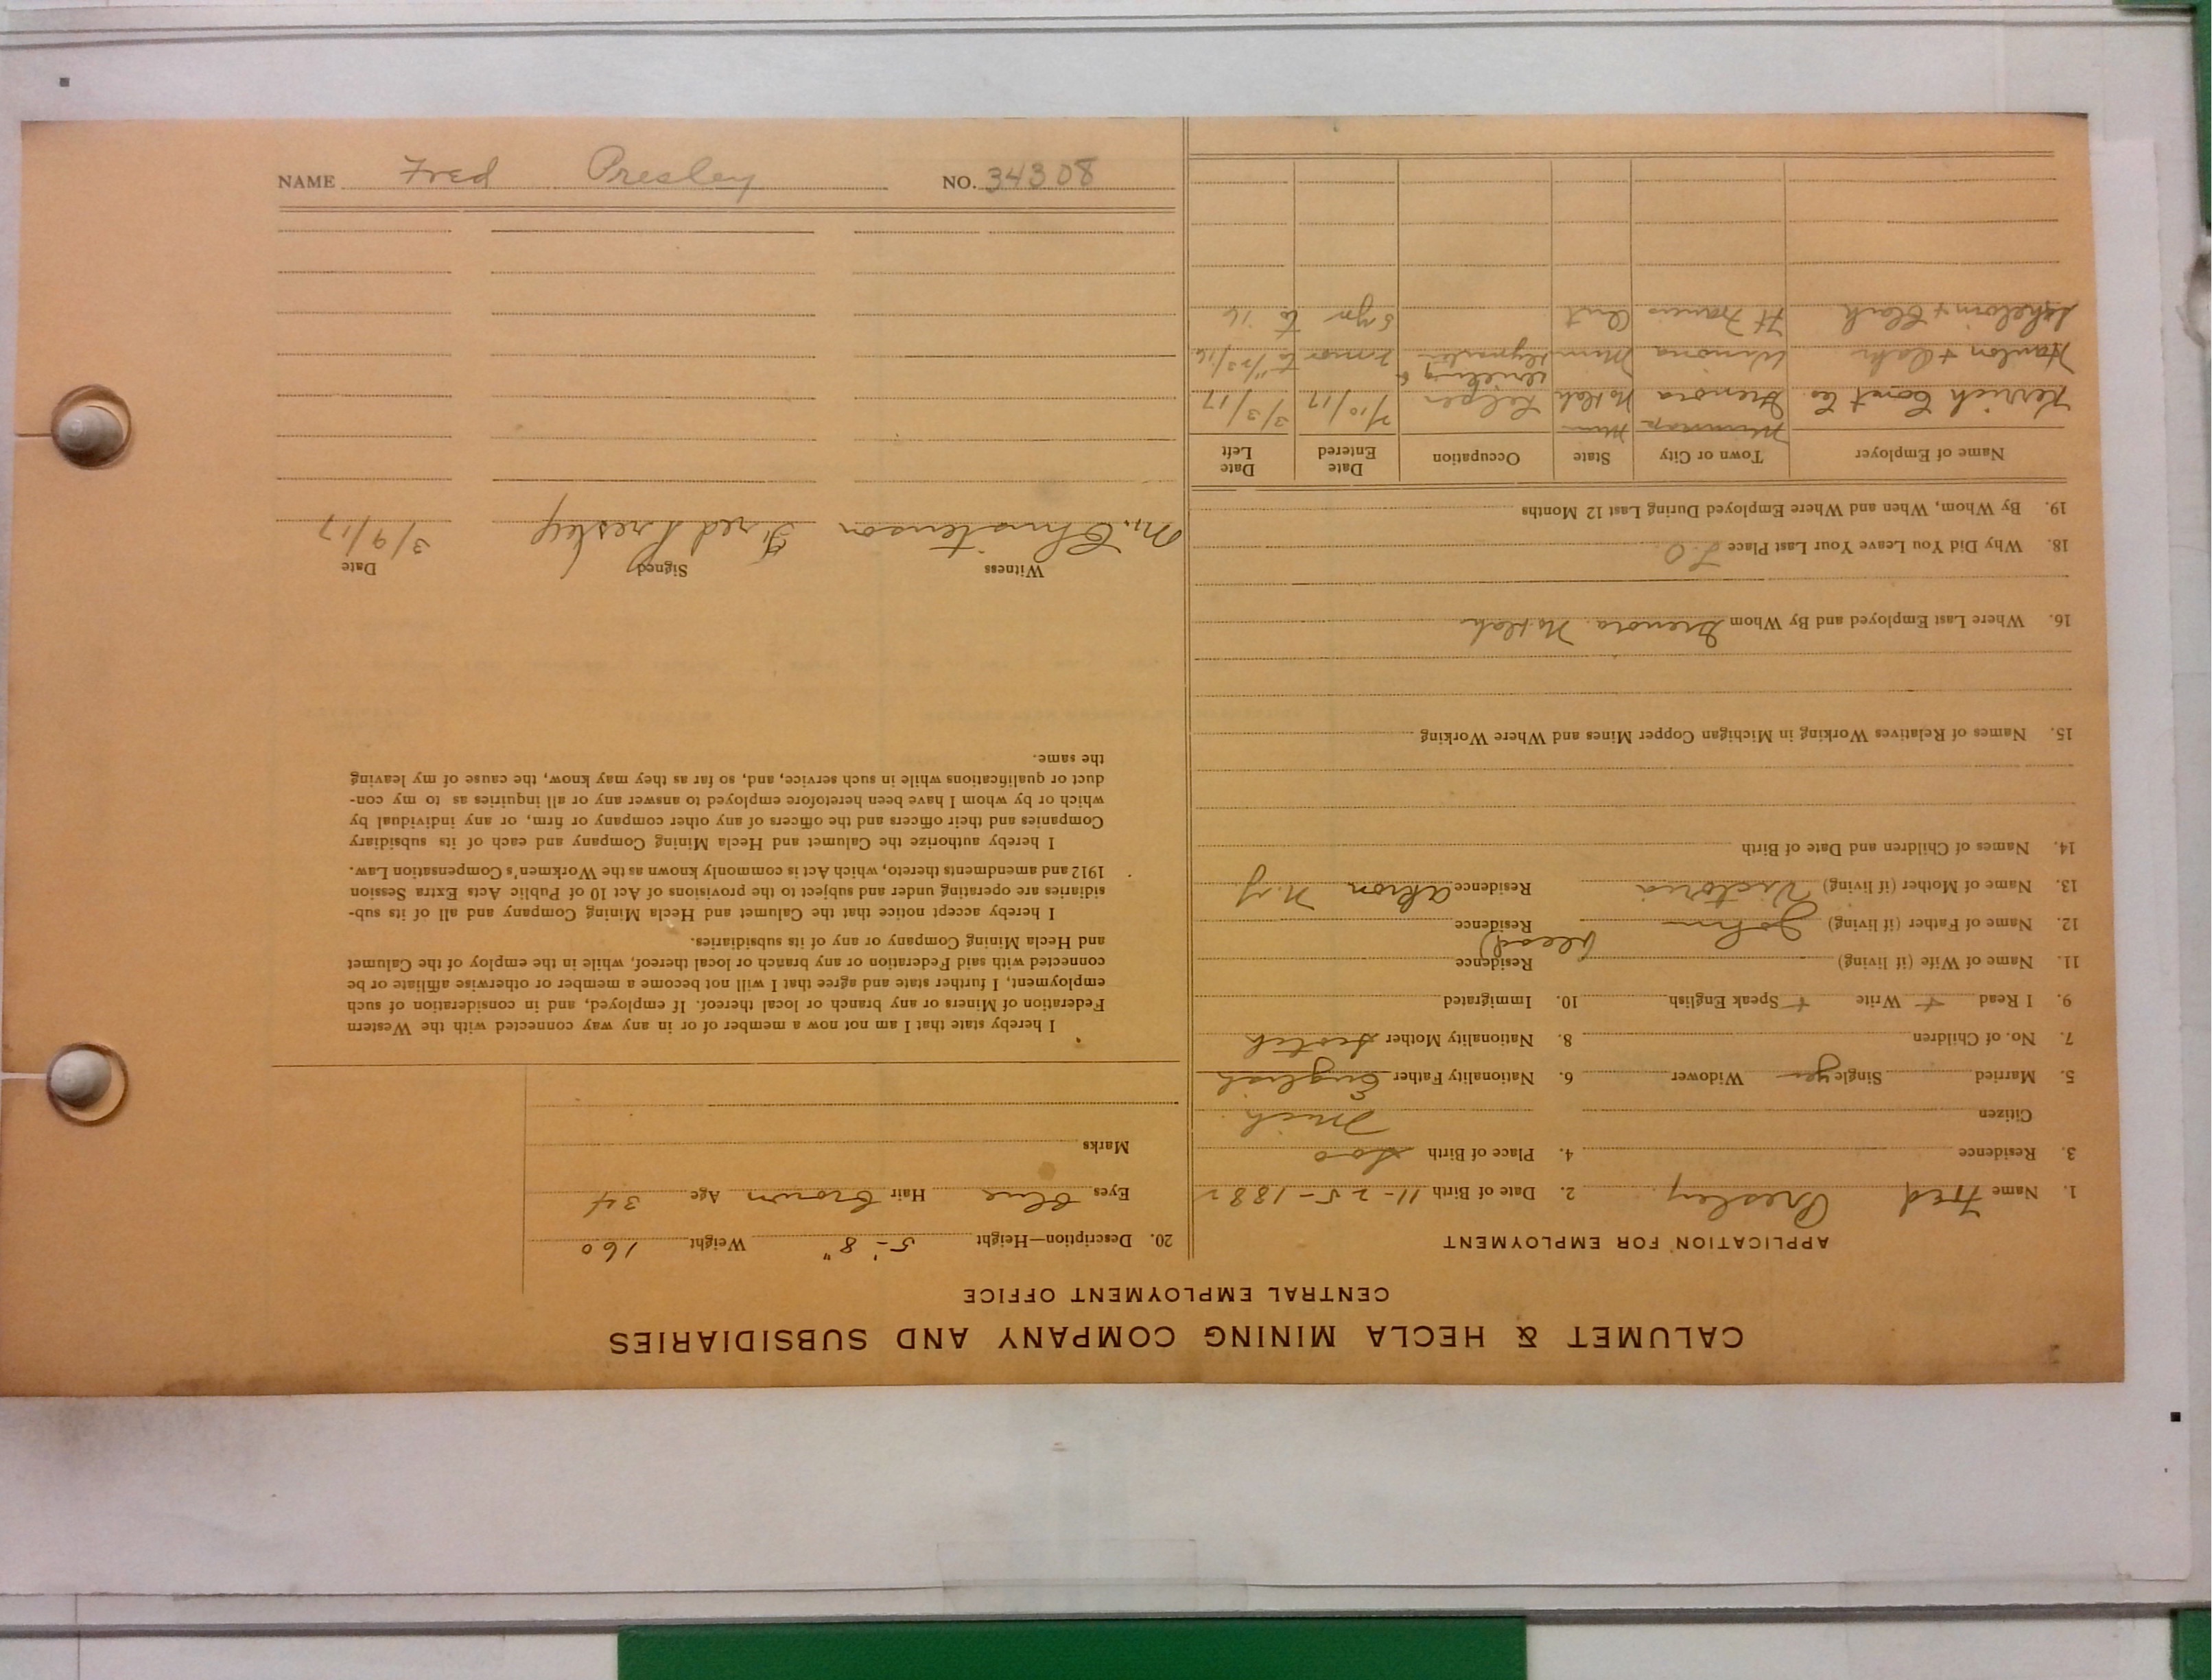 CALUMET & HECLA MINING COMPANY AND SUBSIDIARIES
CENTRAL EMPLOYMENT OFFICE
APPLICATION FOR EMPLOYMENT
1. Name Fred Presley 2. Date of Birth 11-25-1882
3. Residence 4. Place of Birth Soo
Citizen Mich.
5. Married Single yes Widower 6. Nationality Father English
7. No. of Children 8. Nationality Mother Scotch
9. I Read + Write + Speak English 10. Immigrated
11. Name of Wife (if living) Residence
12. Name of Father (if living) John (dead) Residence
13. Name of Mother (if living) Victoria Residence Akron N.Y
14. Names of Children and Date of Birth
15. Names of Relatives Working in Michigan Copper Mines and Where Working
16. Where Last Employed and By Whom Grenora. No Dak
18. Why Did You Leave Your Last Place
19. By Whom, When and Where Employed During Last 12 Months
Name of Employer Town or City State Occupation Date Entered Date Left
Const Co. Grenora No Dak Helper 2/10/17 3/3/17
Hanlon + Winona Minn 2 mos to 11/23/16
+ Clark Ft Francis Ont 5 yr to 16
20. Description—Height 5'-8" Weight 160
Eyes Blue Hair Brown Age 34
Marks
I hereby state that I am not now a member of or in any way connected with the Western
Federation of Miners or any branch or local thereof. If employed, and in consideration of such
employment, I further state and agree that I will not become a member or otherwise affiliate or be
connected with said Federation or any branch or local thereof, while in the employ of the Calumet
and Hecla Mining Company or any of its subsidiaries.
I hereby accept notice that the Calumet and Hecla Mining Company and all of its sub-
sidiaries are operating under and subject to the provisions of Act 10 of Public Acts Extra Session
1912 and amendments thereto, which Act is commonly known as the Workmen's Compensation Law.
I hereby authorize the Calumet and Hecla Mining Company and each of its subsidiary
Companies and their officers and the officers of any other company or firm, or any individual by
which or by whom I have been heretofore employed to answer any or all inquiries as to my con-
duct or qualifications while in such service, and, so far as they may know, the cause of my leaving
the same.
Witness Signed Date
M. Christenson Fred Presley 3/9/17
NAME Fred Presley NO. 34308